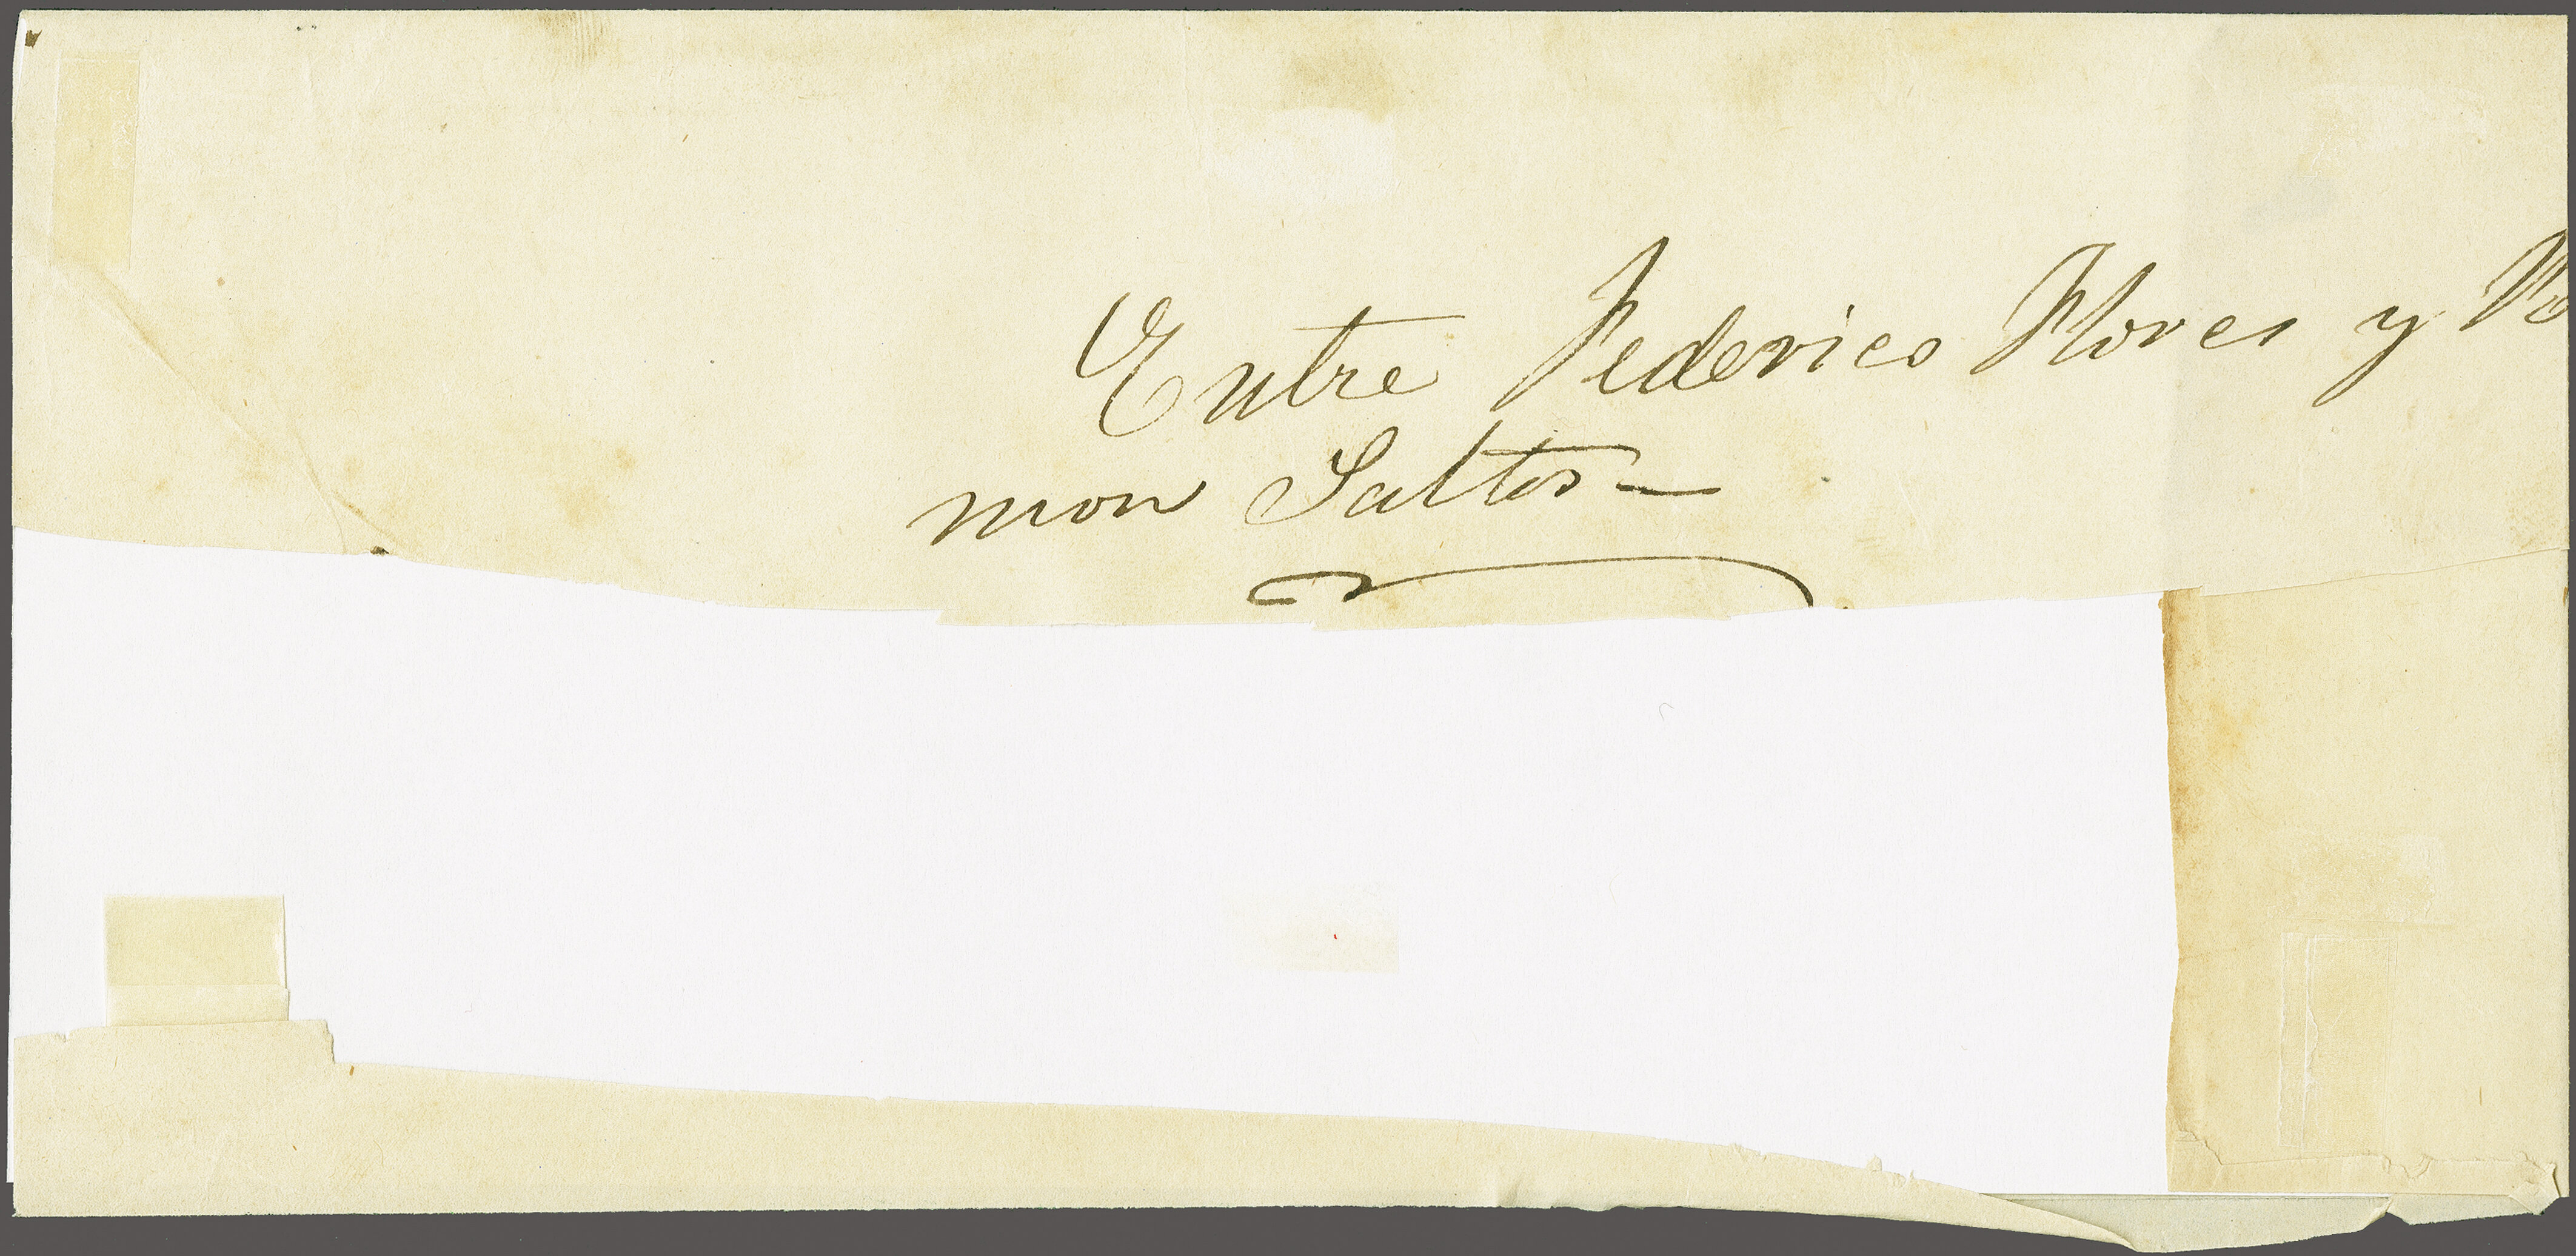 Entre Federico Flores y Ra
mon Saltos